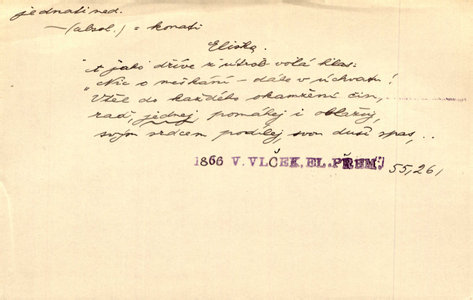 jednati ned.
—(absol.) = konati
Eliška.
A jako dříve z útrob volá hlas:
"Nic o meškání – dále v úchvatu!
Vtěl do každého okamžení čin,
raď, jednej, pomáhej i oblažuj,
svým srdcem poděluj, svou duší spas, ..
1866 V. VLČEK, EL. PŘEM.
55, 26,